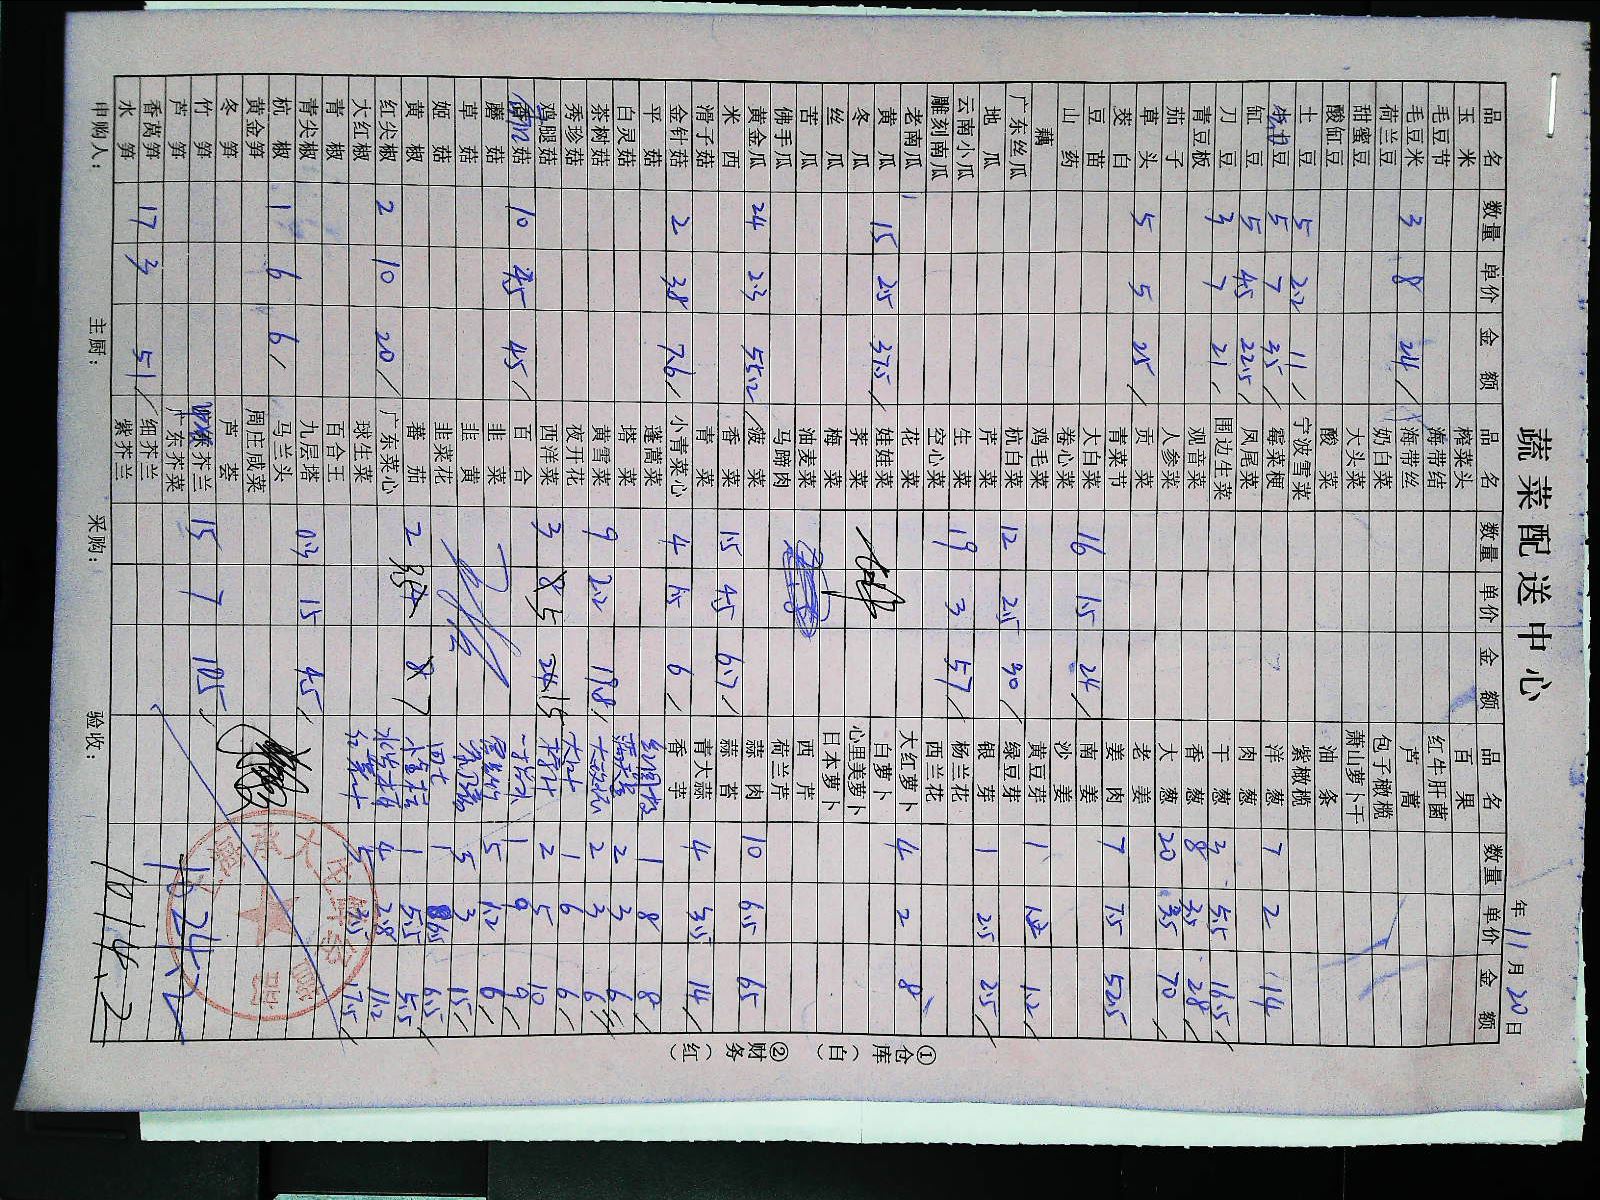 蔬菜配送中心
年 11 月 20 日
品名 数量 单价 金额 品名 数量 单价 金额 品名 数量 单价 金额
玉米 榨菜头 百果
毛豆节 海带结 红牛肝菌
毛豆米 3 8 24 海带丝 芦蒿
荷兰豆 奶白菜 包子橄榄
甜蜜豆 大头菜 萧山萝卜干
酸缸豆 酸菜 油条
土豆 5 2.2 11 宁波雪菜 紫橄榄
豆 5 7 35 霉菜梗 洋葱 7 2 14
缸豆 5 4.5 22.5 凤尾菜 肉葱
刀豆 3 7 21 围边生菜 干葱 3 5.5 16.5
青豆板 观音菜 香葱 8 3.5 28
茄子 人参菜 大葱 20 3.5 70
草头 5 5 25 贡菜 老姜
茭白 青菜节 姜肉 7 7.5 52.5
豆苗 大白菜 16 1.5 24 南姜
山药 卷心菜 沙姜
藕 鸡毛菜 黄豆芽 1 1.2 1.2
广东丝瓜 杭白菜 12 2.5 30 绿豆芽
地瓜 芦菜 银芽 1 2.5 2.5
云南小瓜 生菜 19 3 57 杨兰花
雕刻南瓜 空心菜 西兰花
老南瓜 花菜 大红萝卜 4 2 8
黄瓜 15 2.5 37.5 娃娃菜 白萝卜
冬瓜 荠菜 心里美萝卜
丝瓜 梅菜 日本萝卜
苦瓜 油麦菜 西芹
佛手瓜 马蹄肉 荷兰芹
黄金瓜 24 2.3 55.2 菠菜 蒜肉 10 6.5 65
米西 香菜 1.5 4.5 6.7 蒜苔
滑子菇 青菜 青大蒜 4 3.5 14
金针菇 2 3.8 7.6 小青菜心 4 1.5 6 香芋
平菇 蓬蒿菜 1 8 8
白灵菇 塔菜 2 3 6
茶树菇 黄雪菜 9 2.2 19.8 2 3 6
秀珍菇 夜开花 1 6 6
鸡腿菇 西洋菜 3 5 15 2 5 10
菇 10 4.5 45 百合 1 9 9
蘑菇 韭菜 5 1.2 6
草菇 韭黄 5 3 15
姬菇 韭菜花 1 6.5 6.5
黄椒 蕃茄 2 7 1 5.5 5.5
红尖椒 2 10 20 广东菜心 4 2.8 11.2
大红椒 球生菜 5 3.5 17.5
青椒 百合王
青尖椒 九层塔 0.3 15 4.5
杭椒 1 6 6 马兰头
黄金笋 周庄咸菜
冬笋 芦荟
竹笋 芥兰 15 7 105
芦笋 广东芥菜
香莴笋 17 3 51 细芥兰
水笋 紫芥兰
1024.2
1014.2
申购人： 主厨： 采购： 验收：
①仓库（白） ②财务（红）